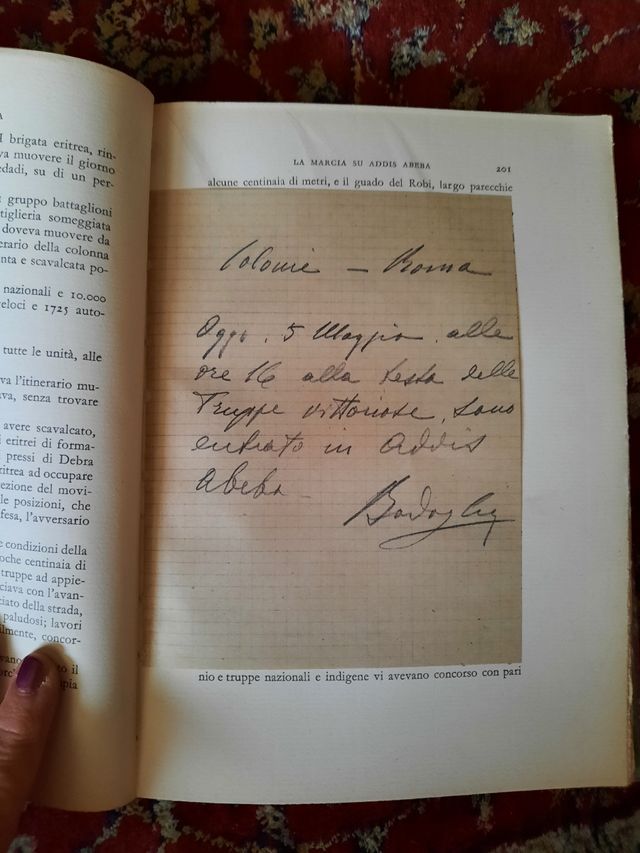 A
brigata eritrea, rin-
va muovere il giorno
edadi, su di un per-
gruppo battaglioni
tiglieria someggiata
doveva muovere da
erario della colonna
nta e scavalcata po-
nazionali e 10.000
veloci e 1725 auto-
tutte le unità, alle
va l'itinerario mu-
ava, senza trovare
avere scavalcato,
i eritrei di forma-
pressi di Debra
ritrea ad occupare
ezione del movi-
le posizioni, che
fesa, l'avversario
e condizioni della
oche centinaia di
truppe ad appie-
ciava con l'avan-
ciato della strada,
paludosi; lavori
ilmente, concor-
vano il
pia
LA MARCIA SU ADDIS ABEBA 201
alcune centinaia di metri, e il guado del Robi, largo parecchie
Colonie — Roma
Oggi, 5 Maggio, alle
ore 16 alla testa delle
Truppe vittoriose, sono
entrato in Addis
Abeba
Badoglio
nio e truppe nazionali e indigene vi avevano concorso con pari